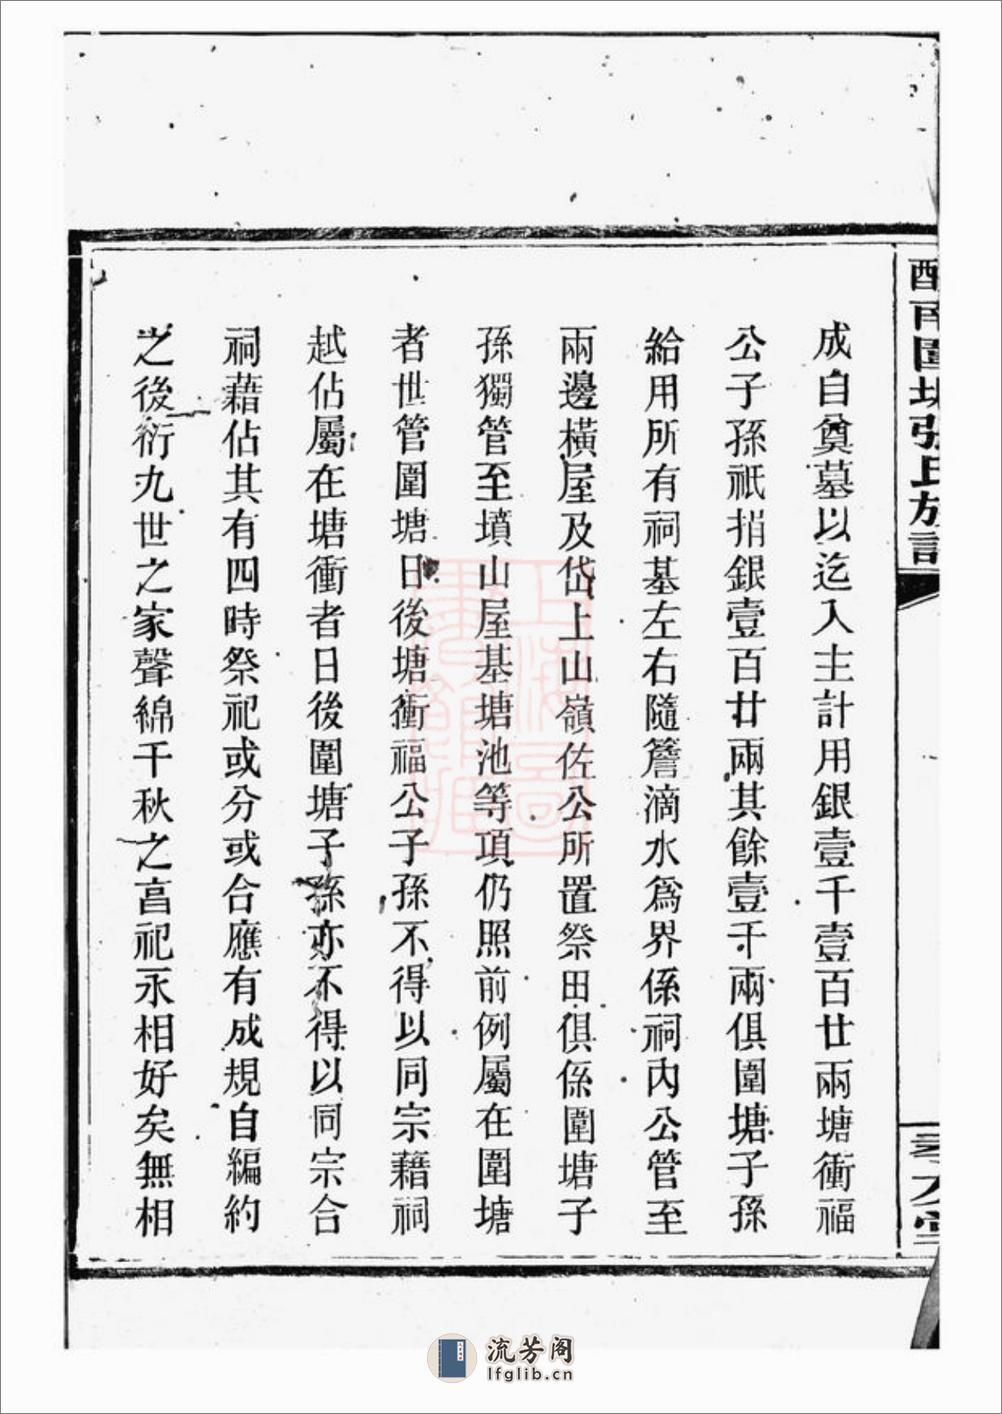 成自奠墓以迄入主計用銀壹千壹百廿兩塘衝福
公子孫祇捐銀壹百廿兩其餘壹千兩俱圍塘子孫
給用所有祠基左右隨簷滴水爲界係祠內公管至
兩邊橫屋及岱上山嶺佐公所置祭田俱係圍塘子
孫獨管至墳山屋基塘池等項仍照前例屬在圍塘
者世管圍塘日後塘衝福公子孫不得以同宗藉祠
越佔屬在塘衝者日後圍塘子孫亦不得以同宗合
祠藉佔其有四時祭祀或分或合應有成規自編約
之後衍九世之家聲綿千秋之亯祀永相好矣無相
上海圖書館藏
流芳阁
lfglib.cn